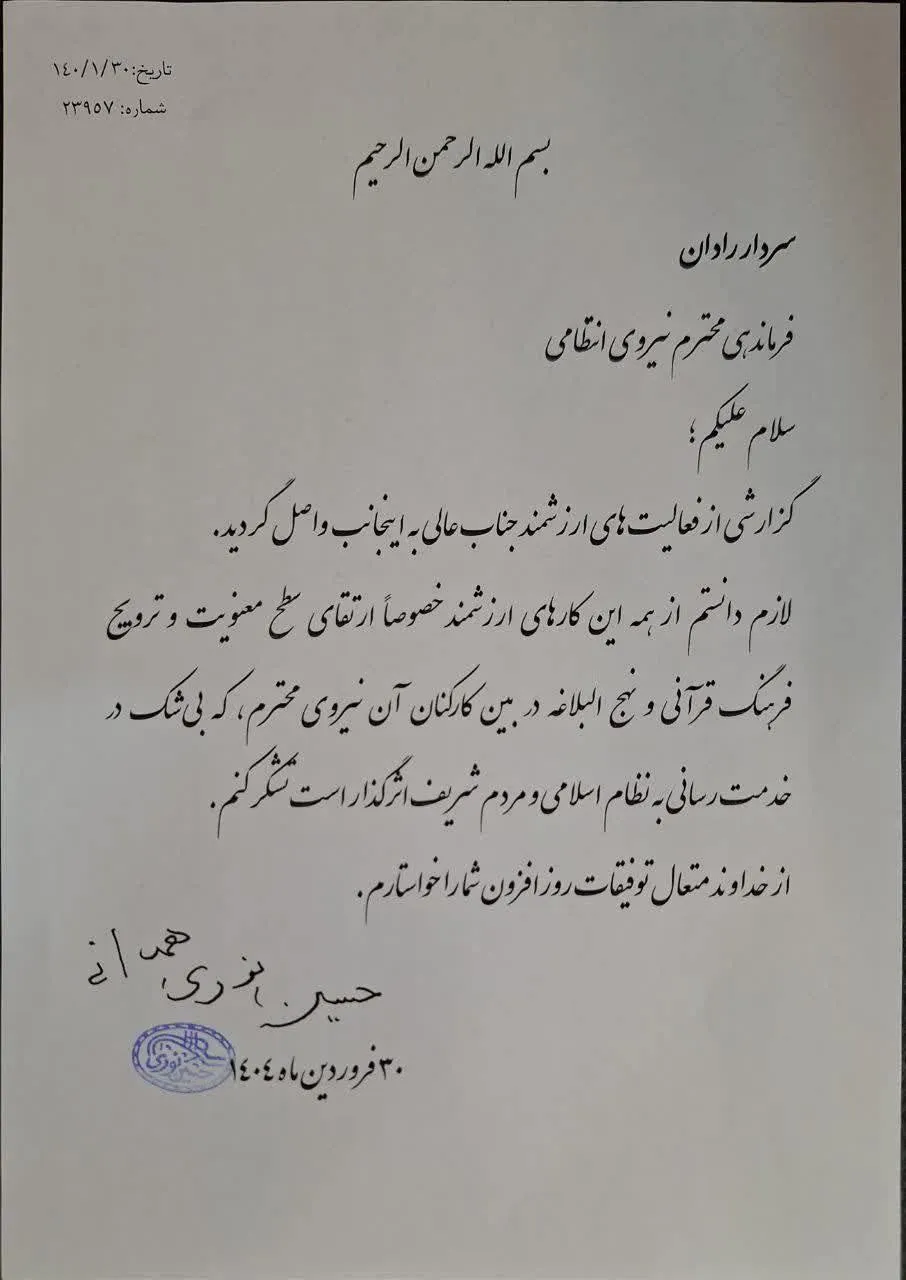 تاریخ: ۱۴۰/۱/۳۰
شماره: ۲۳۹۵۷
بسم الله الرحمن الرحیم
سردار رادان
فرماندهی محترم نیروی انتظامی
سلام علیکم؛
گزارشی از فعالیت‌های ارزشمند جناب عالی به اینجانب واصل گردید.
لازم دانستم از همه این کارهای ارزشمند خصوصاً ارتقای سطح معنویت و ترویج
فرهنگ قرآنی و نهج البلاغه در بین کارکنان آن نیروی محترم، که بی‌شک در
خدمت رسانی به نظام اسلامی و مردم شریف اثرگذار است تشکر کنم.
از خداوند متعال توفیقات روزافزون شما را خواستارم.
حسین نوری همدانی
۳۰ فروردین ماه ۱۴۰۴
حسین نوری